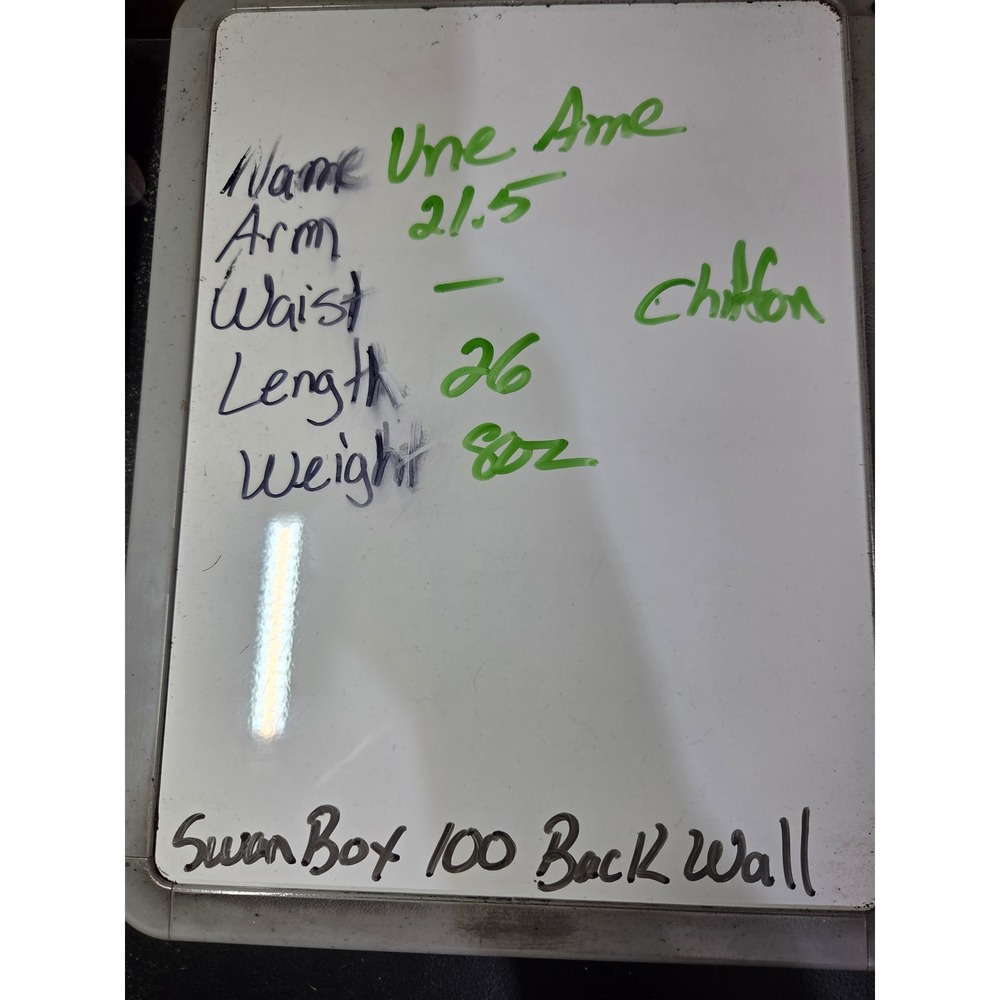 Name Une Ame
Arm 21.5
Waist — Chiffon
Length 26
Weight 8oz
Swan Box 100 Back Wall